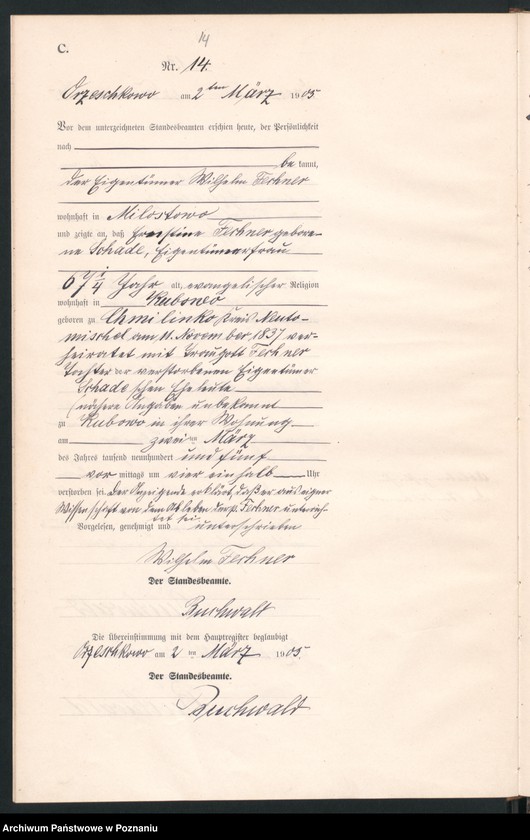 14
C.
Nr. 14.
Orzeschkowo am 2ten März 1905
Vor dem unterzeichneten Standesbeamten erschien heute, der Persönlichkeit
nach
be kannt,
der Eigentümer Wilhelm Ferkner
wohnhaft in Milostowo
und zeigte an, daß Ernestine Ferkner gebore-
ne Schade, Eigentümerfrau
67 1/4 Jahr alt, evangelischer Religion
wohnhaft in Kubowo
geboren zu Chmilinko Kreis Neuto-
mischel am 11. November 1837 ver-
heiratet mit Traugott Ferkner
Tochter der verstorbenen Eigentümer
Schade'schen Eheleute
(nähere Angaben unbekannt
zu Kubowo in ihrer Wohnung
am zwei ten März
des Jahres tausend neunhundert und fünf
vor mittags um vier einhalb Uhr
verstorben sei. Der Anzeigende erklärt, daß er aus eigner
Wissenschaft von dem Ableben der p. Ferkner unterrich-
tet sei
Vorgelesen, genehmigt und unterschrieben
Wilhelm Ferkner
Der Standesbeamte.
Buchwald
Die Übereinstimmung mit dem Hauptregister beglaubigt
Orzeschkowo am 2 ten März 1905.
Der Standesbeamte.
Buchwald
Archiwum Państwowe w Poznaniu